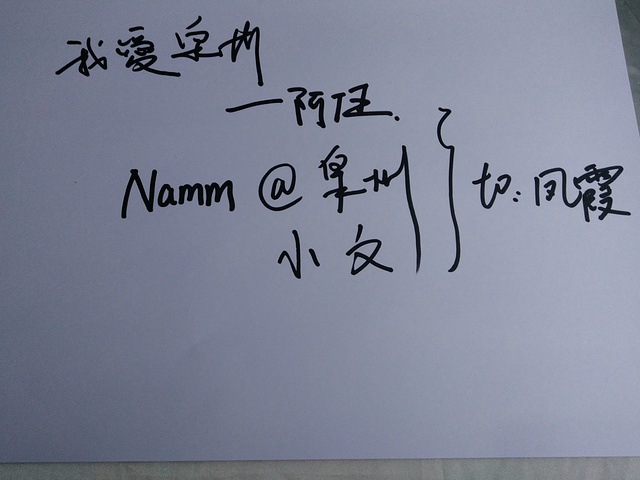 我愛泉州
—阿汪.
Namm @ 泉州
小文
to: 凤霞